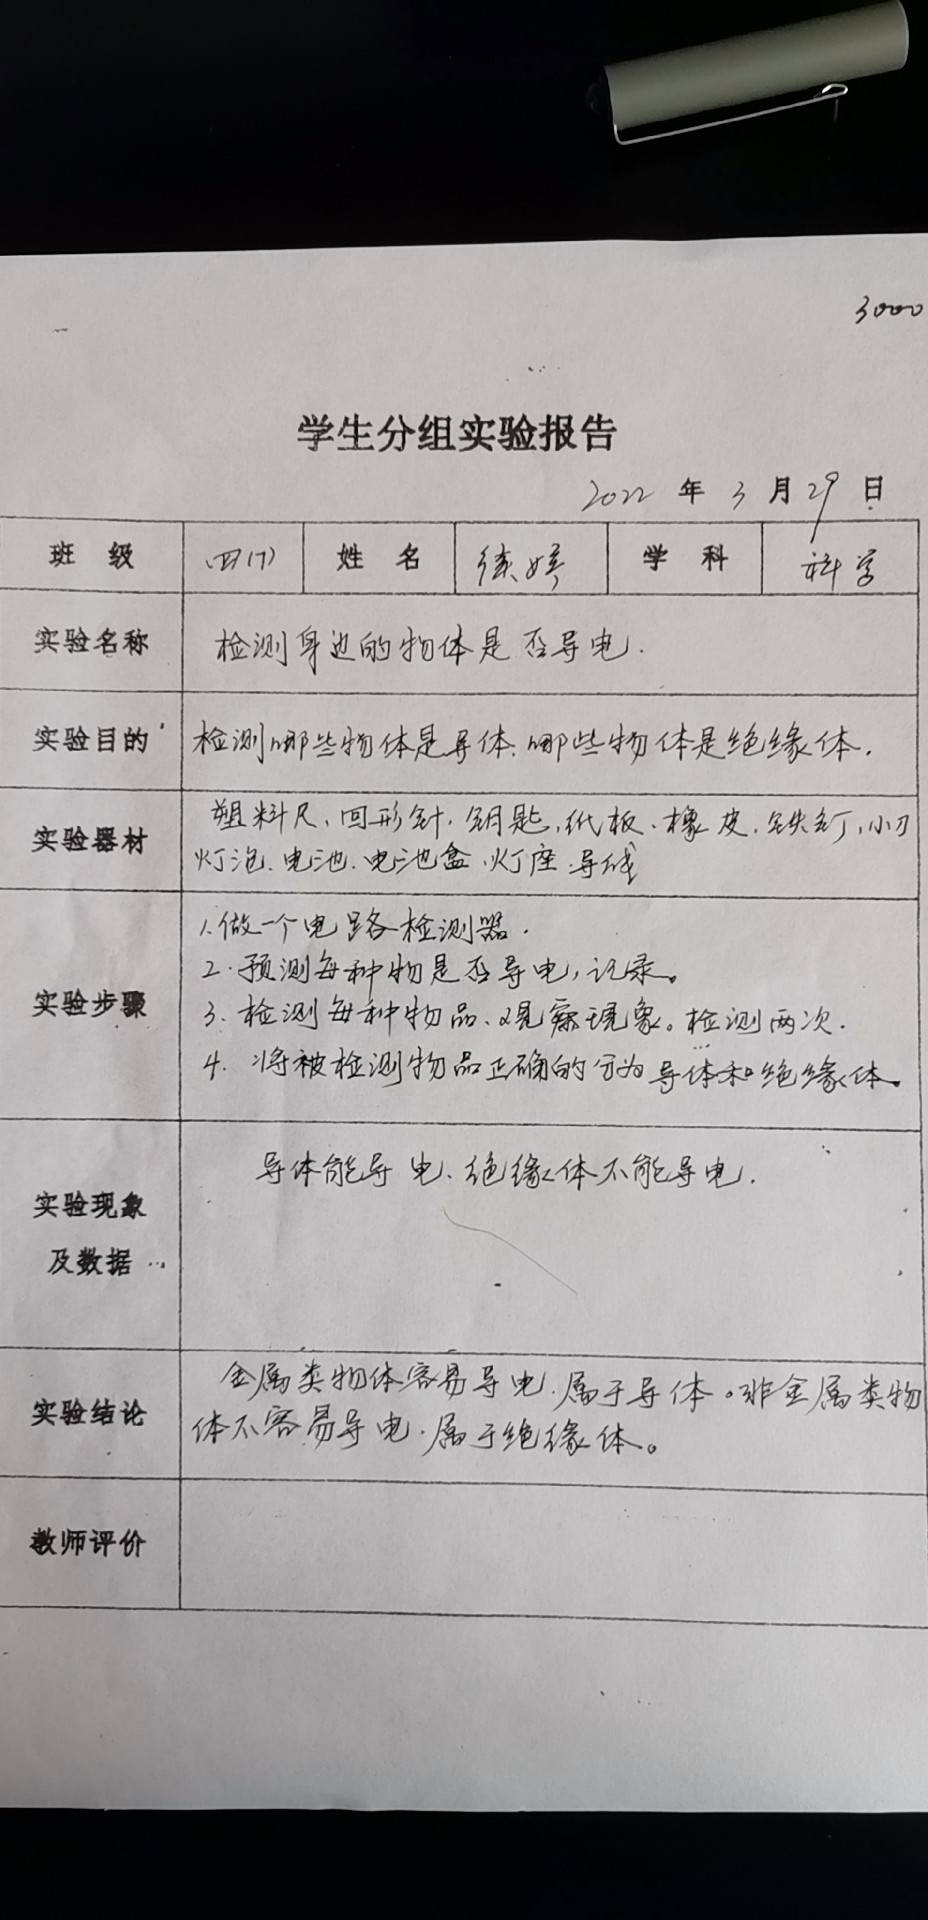 3000
学生分组实验报告
2022 年 3 月 29 日
班 级 四(7) 姓 名 徐婷 学 科 科学
实验名称 检测身边的物体是否导电.
实验目的 检测哪些物体是导体、哪些物体是绝缘体.
实验器材 塑料尺、回形针、钥匙、纸板、橡皮、铁钉、小刀
灯泡、电池、电池盒、灯座、导线
实验步骤
1.做一个电路检测器.
2.预测每种物是否导电,记录。
3.检测每种物品、观察现象。检测两次.
4.将被检测物品正确的分为导体和绝缘体。
实验现象
及数据
导体能导电、绝缘体不能导电.
实验结论 金属类物体容易导电、属于导体。非金属类物
体不容易导电、属于绝缘体。
教师评价